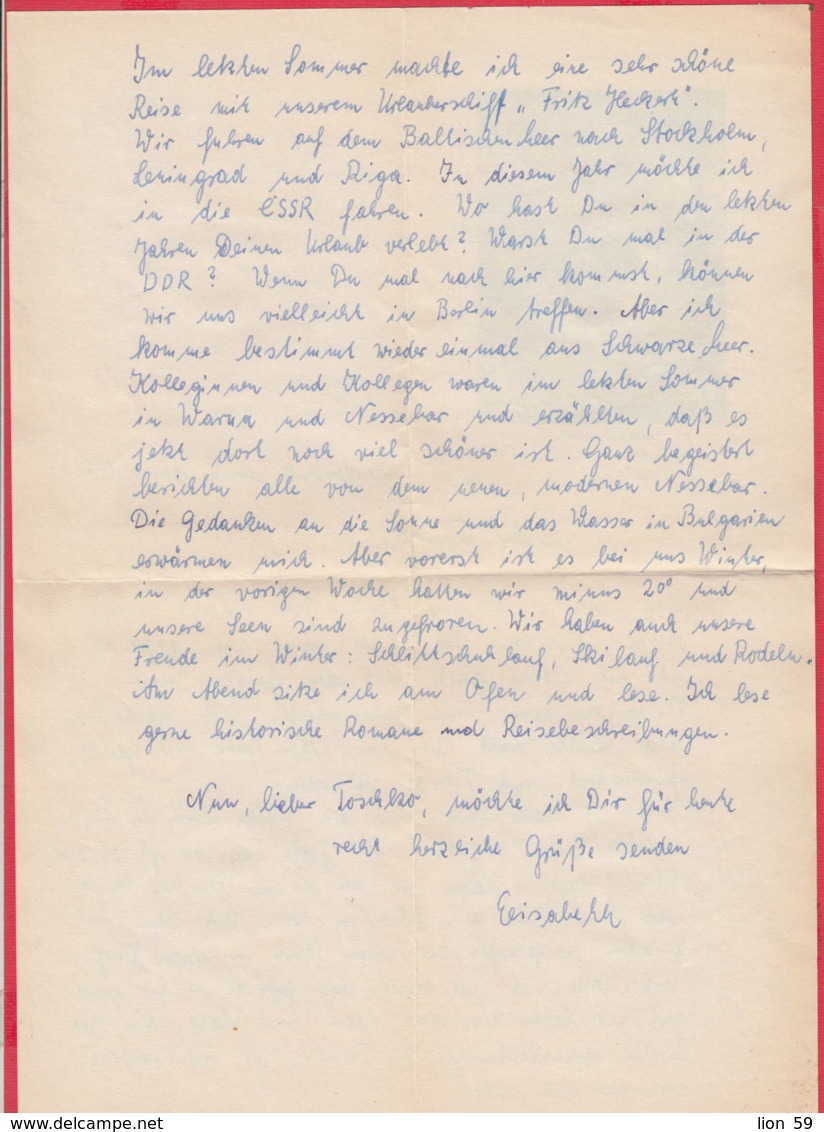 Im letzten Sommer machte ich eine sehr schöne
Reise mit unserem Urlauberschiff „Fritz Heckert".
Wir fuhren auf dem Baltischen Meer nach Stockholm,
Leningrad und Riga. In diesem Jahr möchte ich
in die ČSSR fahren. Wo hast Du in den letzten
Jahren Deinen Urlaub verlebt? Warst Du mal in der
DDR? Wenn Du mal nach hier kommst, können
wir uns vielleicht in Berlin treffen. Aber ich
komme bestimmt wieder einmal ans Schwarze Meer.
Kolleginnen und Kollegen waren im letzten Sommer
in Warna und Nessebar und erzählten, daß es
jetzt dort noch viel schöner ist. Ganz begeistert
berichten alle von dem neuen, modernen Nessebar.
Die Gedanken an die Sonne und das Wasser in Bulgarien
erwärmen mich. Aber vorerst ist es bei uns Winter,
in der vorigen Woche hatten wir minus 20° und
unsere Seen sind zugefroren. Wir haben auch unsere
Freude im Winter: Schlittschuhlauf, Skilauf und Rodeln.
Am Abend sitze ich am Ofen und lese. Ich lese
gerne historische Romane und Reisebeschreibungen.
Nun, lieber Toschko, möchte ich Dir für heute
recht herzliche Grüße senden
Elisabeth
lion 59